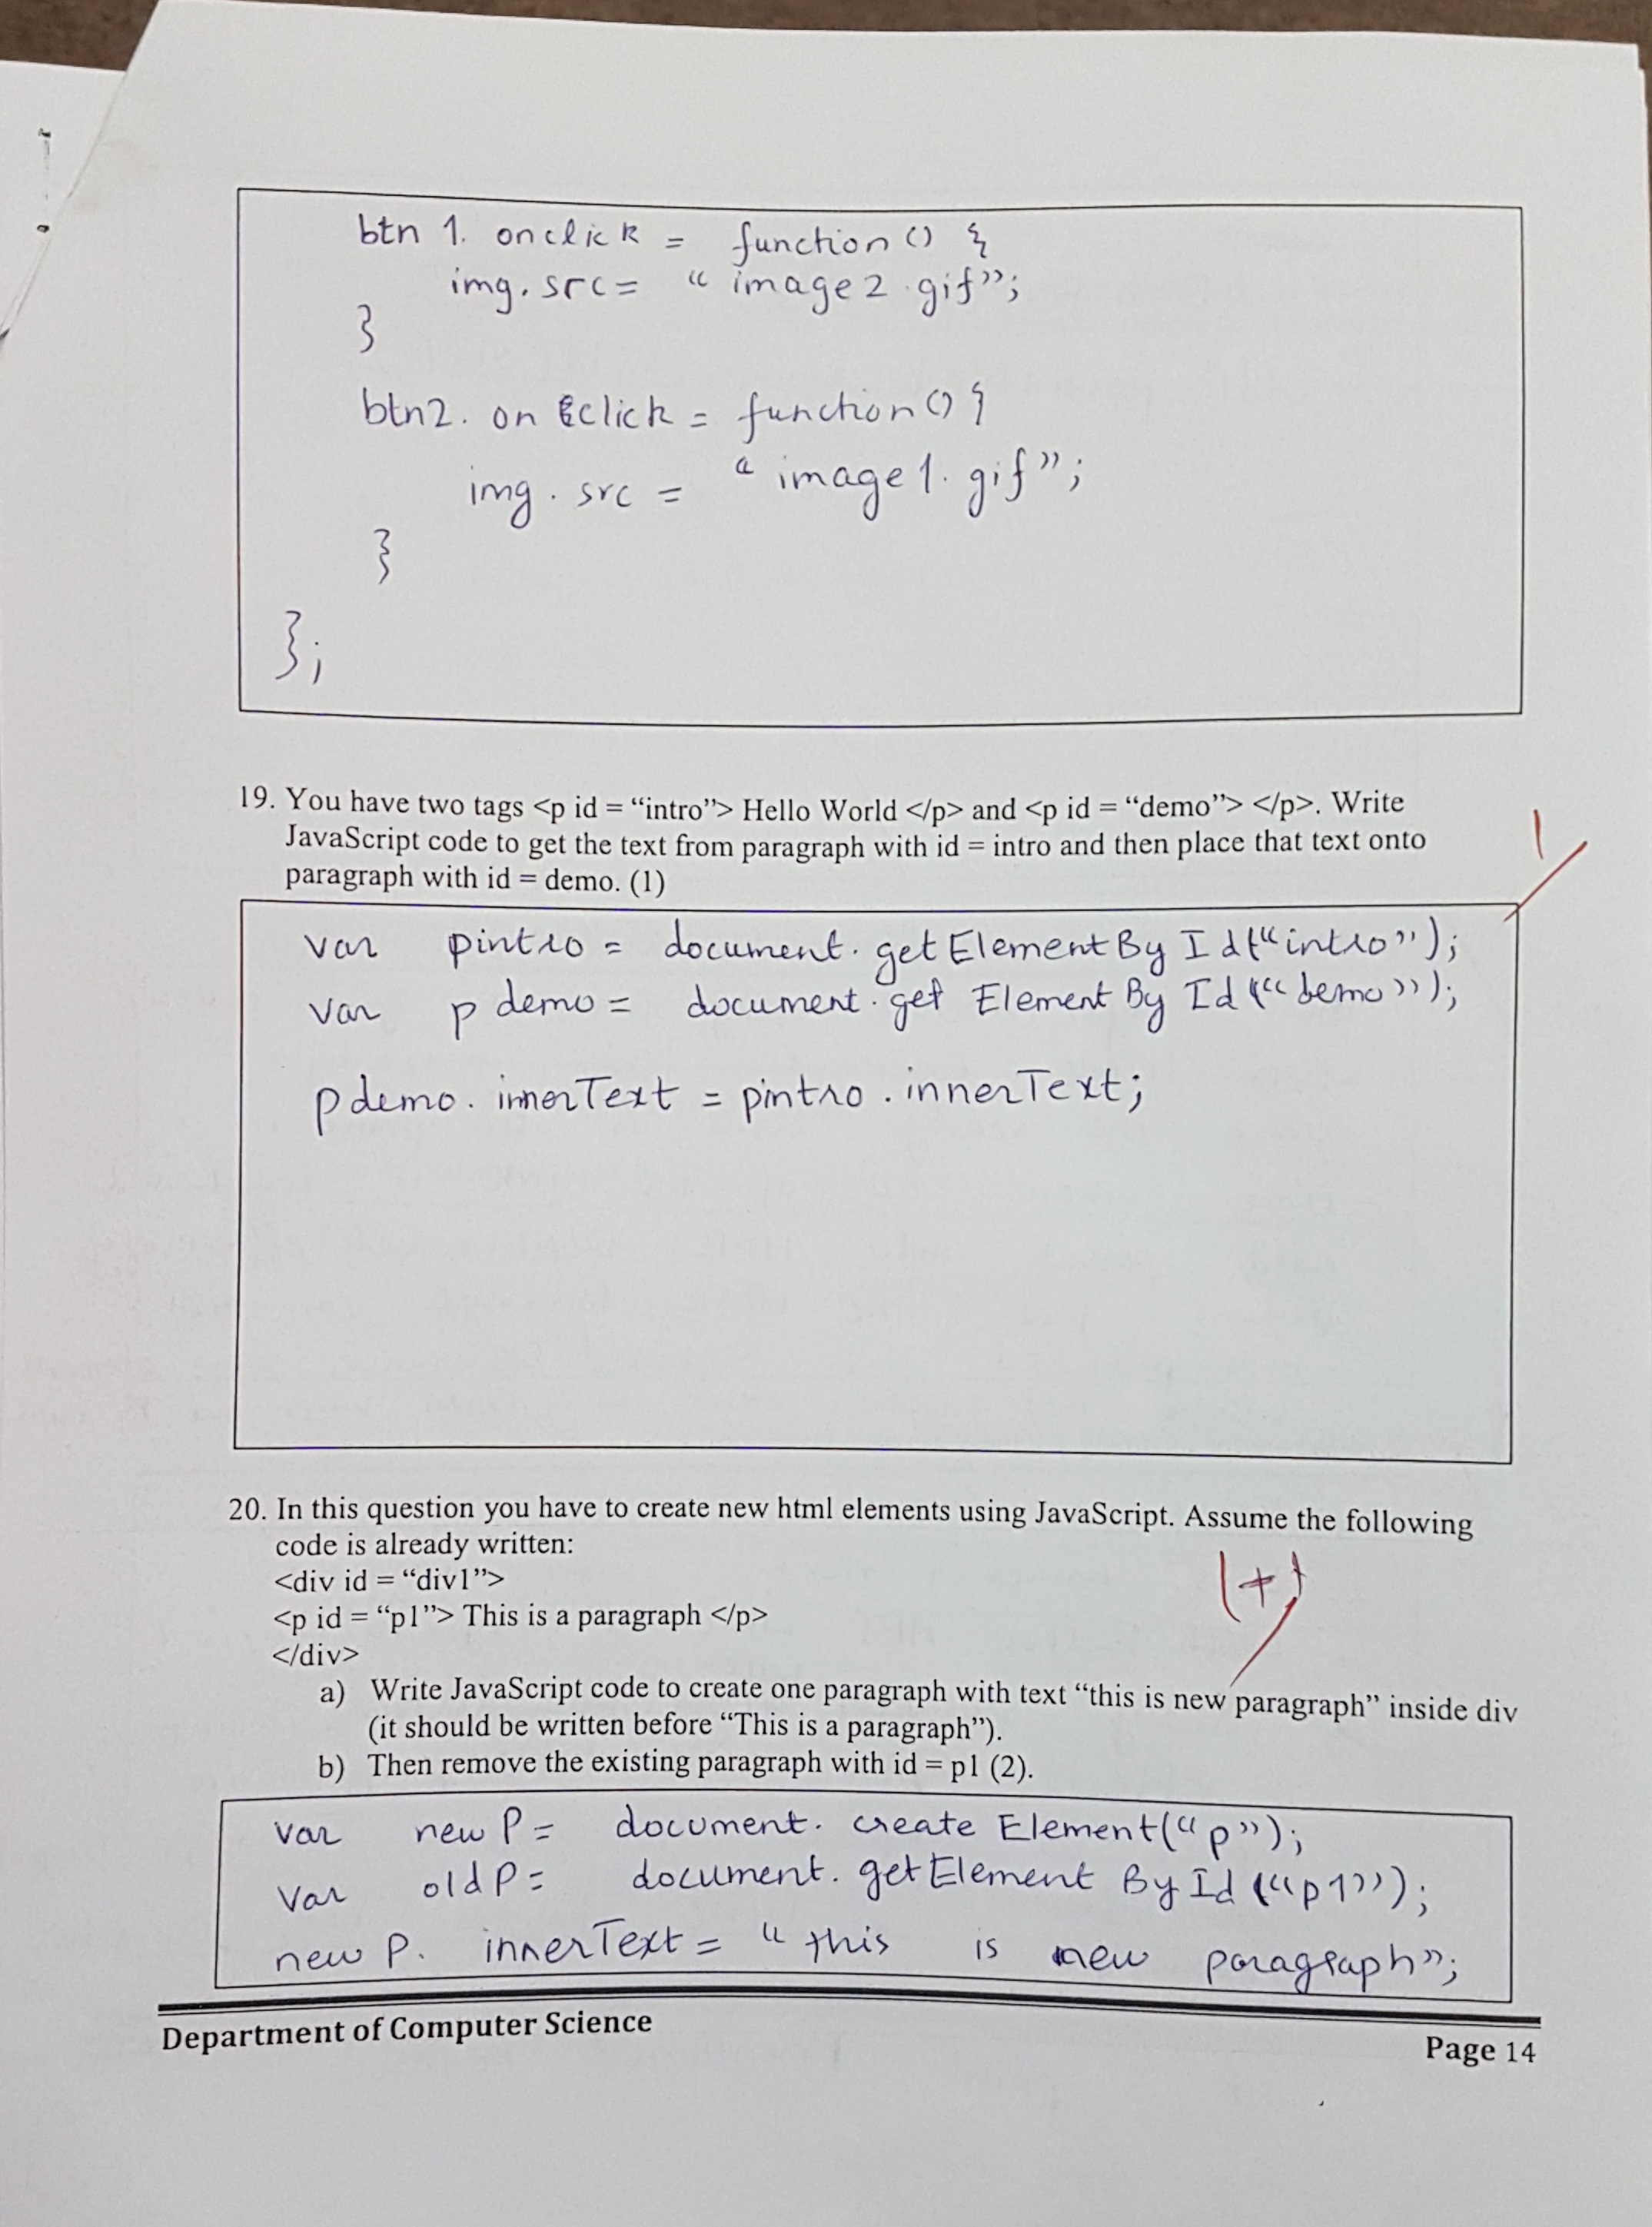 btn 1. onclick = function () {
img. src = “ image 2 . gif”;
}
btn2. on click = function () {
img . src = “ image 1. gif”;
}
};
19. You have two tags <p id = “intro”> Hello World </p> and <p id = “demo”> </p>. Write
JavaScript code to get the text from paragraph with id = intro and then place that text onto
paragraph with id = demo. (1)
1
var pintro = document. getElementBy Id (“intro”);
var p demo = document. get Element By Id (“demo”);
pdemo. innerText = pintro . innerText;
20. In this question you have to create new html elements using JavaScript. Assume the following
code is already written:
<div id = “div1”>
<p id = “p1”> This is a paragraph </p>
</div>
1+1
a) Write JavaScript code to create one paragraph with text “this is new paragraph” inside div
(it should be written before “This is a paragraph”).
b) Then remove the existing paragraph with id = p1 (2).
var new P = document. create Element(“p”);
var oldP = document. getElement By Id (“p1”);
new P. innerText = “ this is new paragraph”;
Department of Computer Science
Page 14